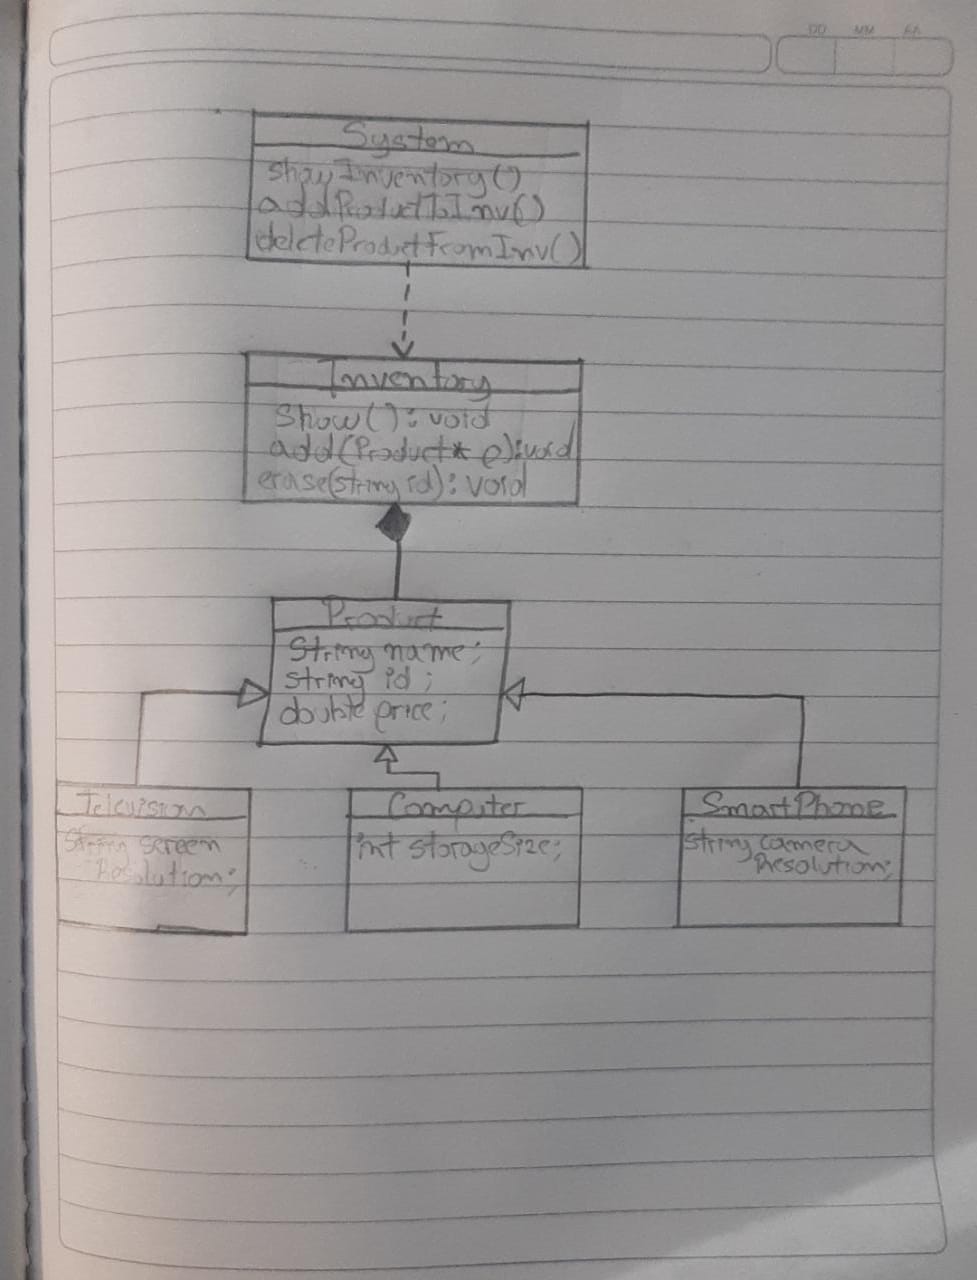 DD MM AA
System
showInventory()
addProductToInv()
deleteProductFromInv()
Inventory
Show(): void
add(Product* e): void
erase(string id): void
Product
String name;
string id;
double price;
Television
String screen
Resolution;
Computer
int storageSize;
SmartPhone
string camera
Resolution;